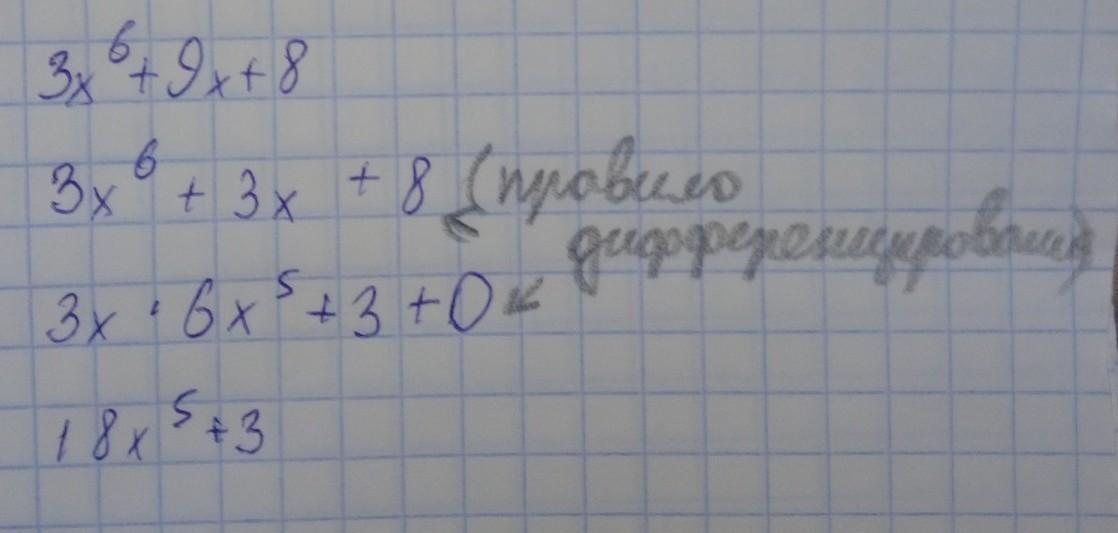 3x⁶+9x+8
3x⁶ + 3x + 8 (правило
дифференцирования)
3x · 6x⁵ + 3 + 0
18x⁵+3